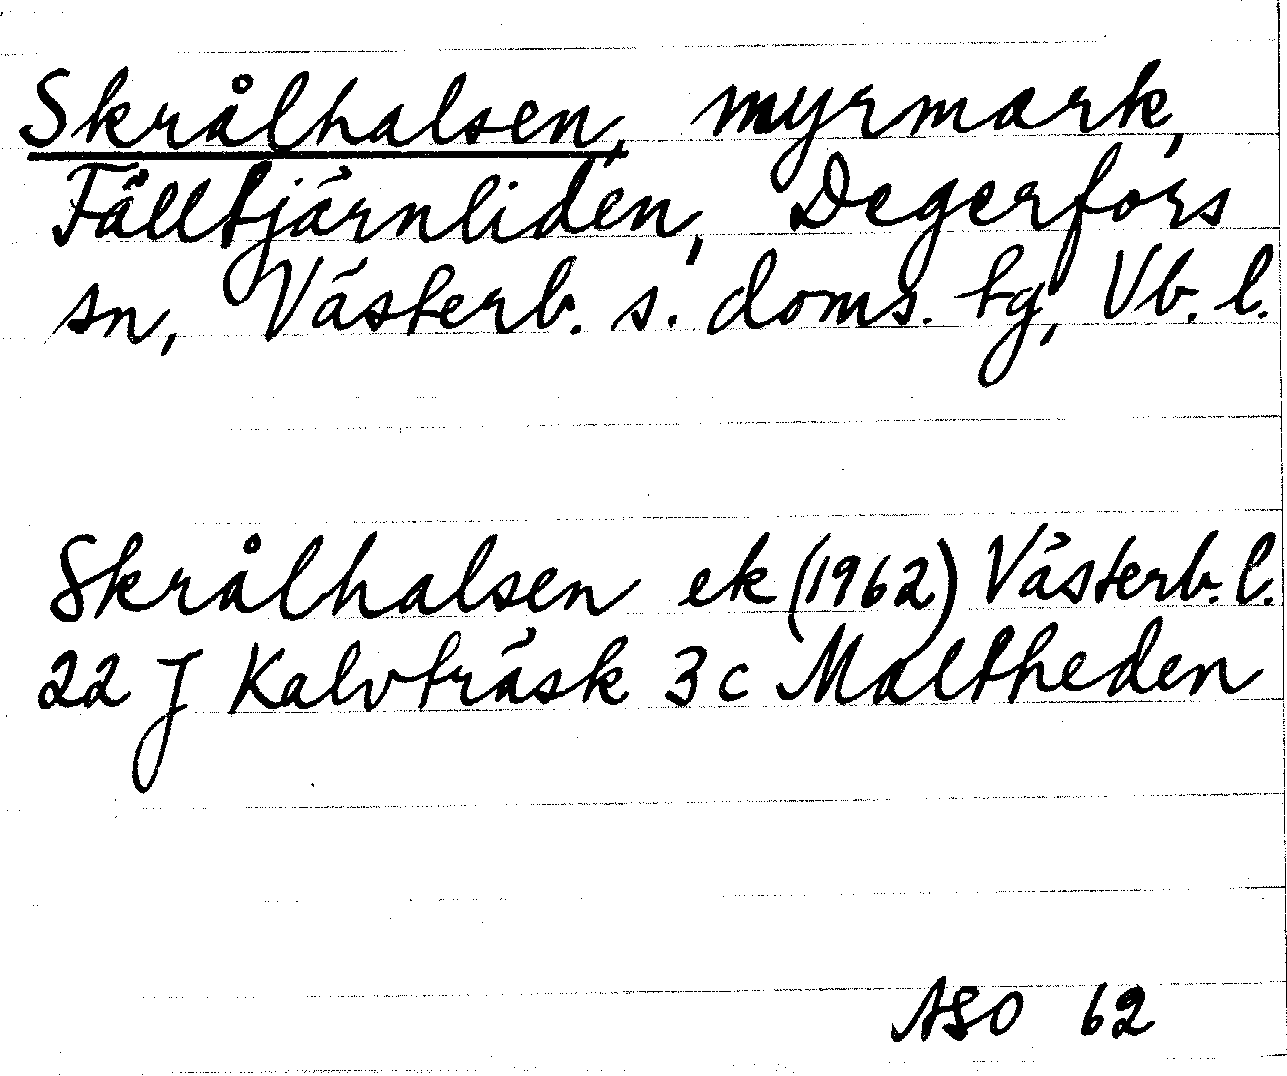 Skrålhalsen, myrmark,
Fälltjärnliden, Degerfors
sn, Västerb. s. doms. tg, Vb. l.
Skrålhalsen ek (1962) Västerb. l.
22 J Kalvträsk 3c Maltheden
ASO 62